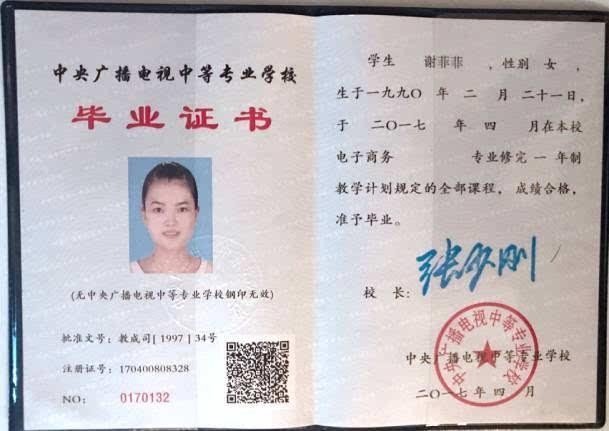 中央广播电视中等专业学校
毕业证书
(无中央广播电视中等专业学校钢印无效)
批准文号：教成司[1997]34号
注册证号：170400808328
NO： 0170132
学生 谢菲菲 ，性别 女，
生于一九九〇年 二 月 二十一日，
于 二〇一七 年 四 月在本校
电子商务 专业修完 一 年制
教学计划规定的全部课程，成绩合格，
准予毕业。
校 长：
中央广播电视中等专业学校
中央广播电视中等专业学校
二〇一七年 四 月